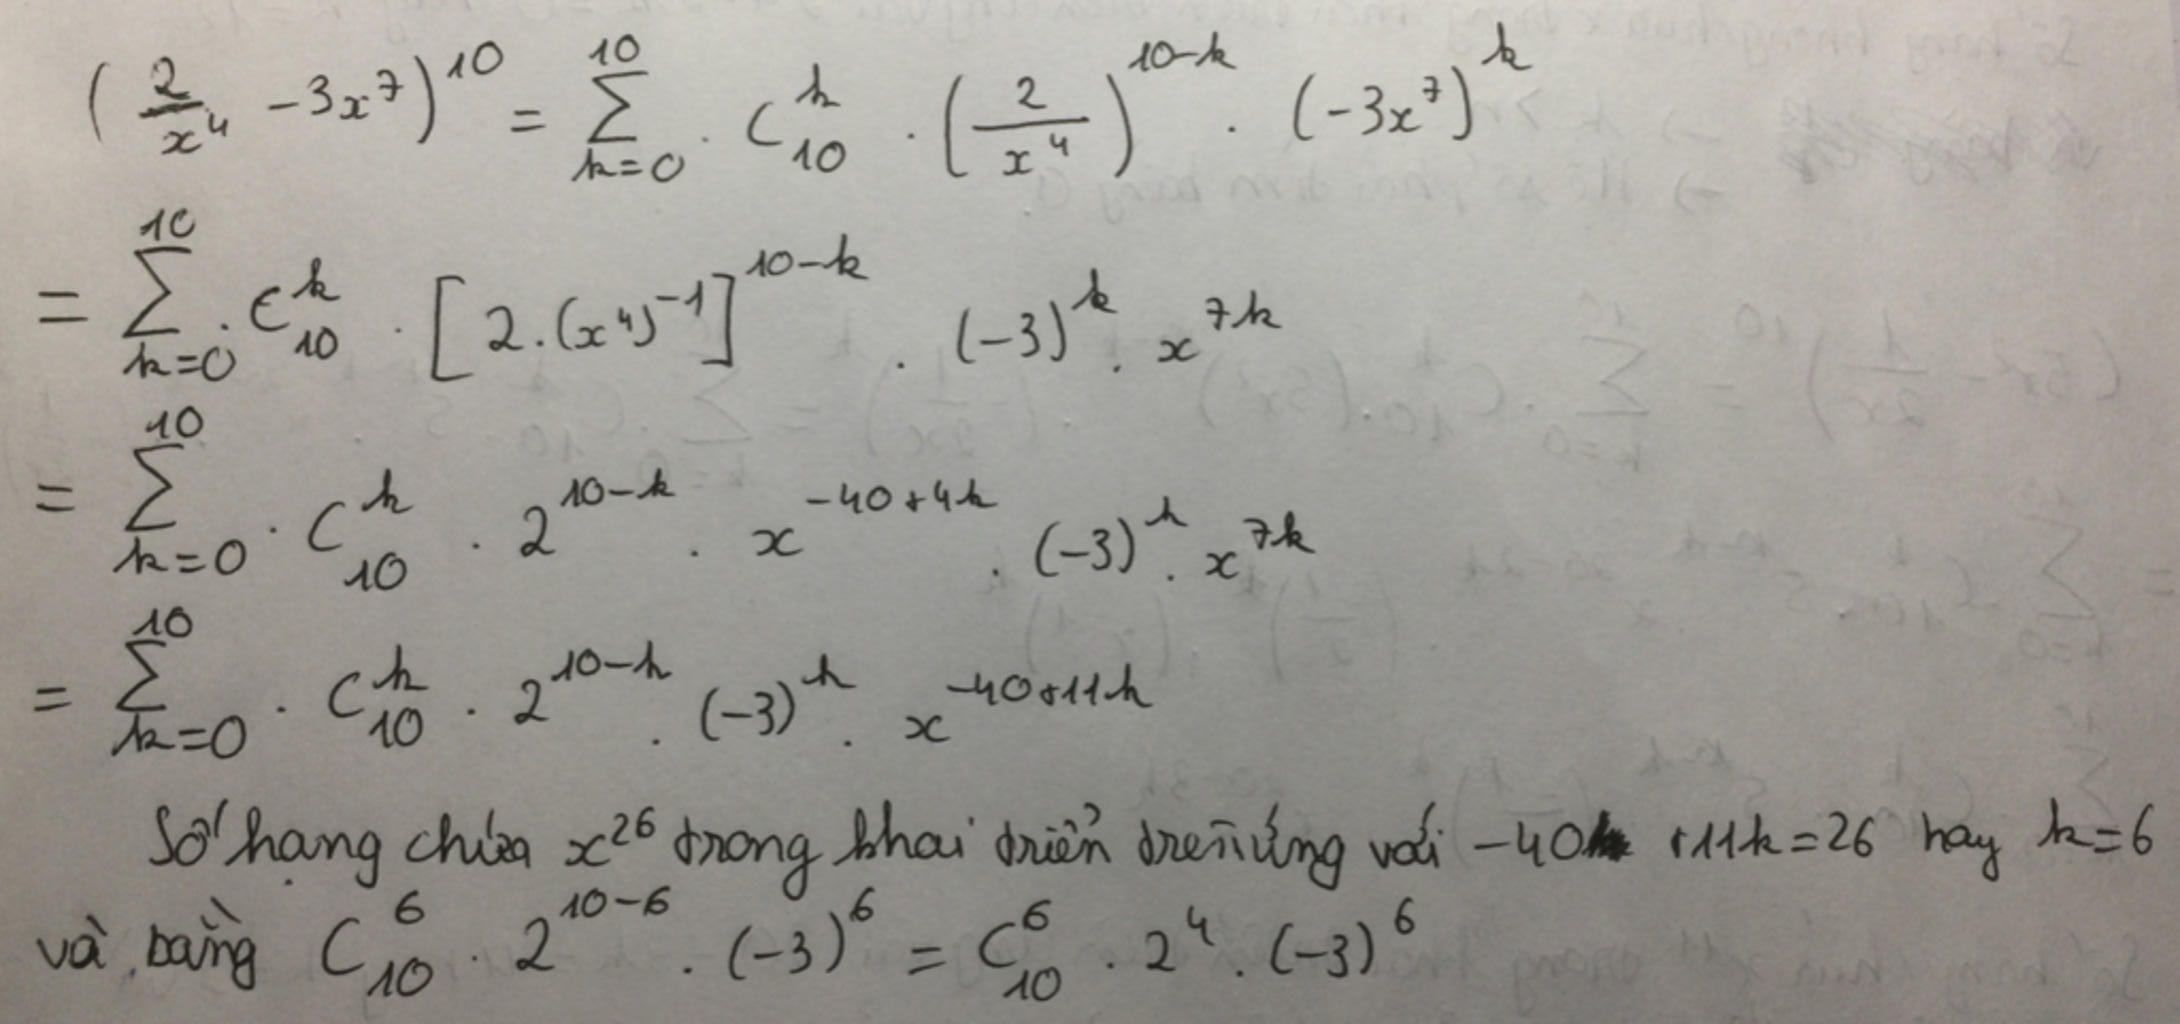 (2/x⁴ - 3x⁷)¹⁰ = ∑_{k=0}^{10} . C_{10}^{k} . (2/x⁴)^{10-k} . (-3x⁷)^{k}
= ∑_{k=0}^{10} . C_{10}^{k} . [2.(x⁴)⁻¹]^{10-k} . (-3)^{k} . x^{7k}
= ∑_{k=0}^{10} . C_{10}^{k} . 2^{10-k} . x^{-40+4k} . (-3)^{k} . x^{7k}
= ∑_{k=0}^{10} . C_{10}^{k} . 2^{10-k} . (-3)^{k} . x^{-40+11k}
Số hạng chứa x²⁶ trong khai triển trên ứng với -40 +11k = 26 hay k = 6
và bằng C_{10}^{6} . 2^{10-6} . (-3)⁶ = C_{10}^{6} . 2⁴ . (-3)⁶